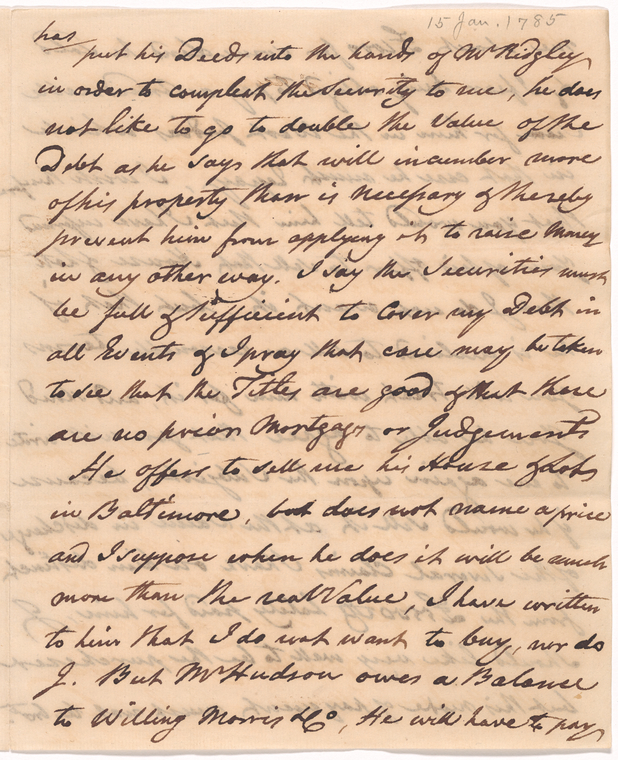 15 Jan. 1785
has
put his Deeds into the hands of Mr Ridgley
in order to compleat the Security to me, he does
not like to go to double the Value of the
Debt as he says that will incumber more
of his property than is necessary & thereby
prevent him from applying it to raise Money
in any other way. I say the Securities must
be full & sufficient to Cover my Debt in
all Events & I pray that care may be taken
to see that the Titles are good & that there
are no prior Mortgages or Judgements
He offers to sell me his House & Lots
in Baltimore, but does not name a price
and I suppose when he does it will be much
more than the real Value, I have written
to him that I do not want to buy, nor do
I. But Mr Hudson owes a Balance
to Willing Morris & Co, He will have to pay